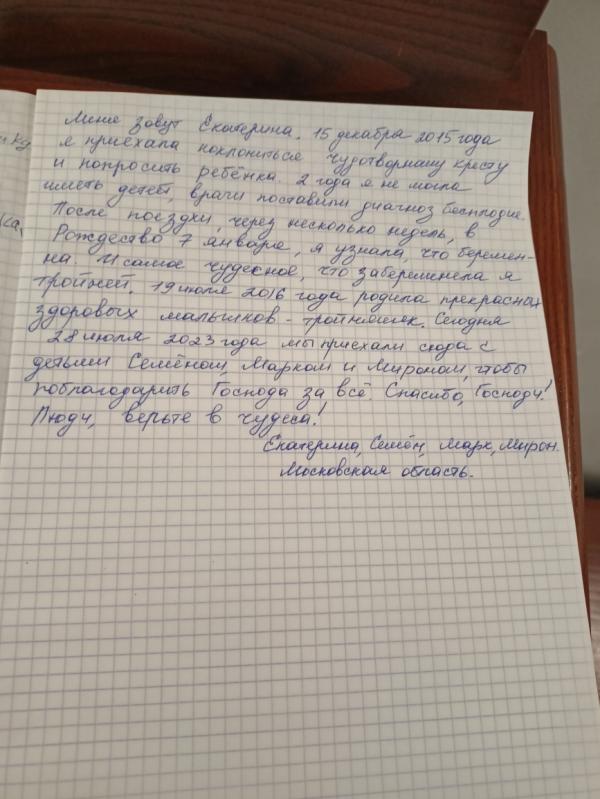 Меня зовут Екатерина. 15 декабря 2015 года
я приехала поклониться чудотворному кресту
и попросить ребёнка. 2 года я не могла
иметь детей, врачи поставили диагноз бесплодие.
После поездки, через несколько недель, в
Рождество 7 января, я узнала, что беремен-
на. И самое чудесное, что забеременела я
тройней. 19 июля 2016 года родила прекрасных
здоровых мальчиков - тройняшек. Сегодня
28 июля 2023 года мы приехали сюда с
детьми Семёном, Марком и Мироном, чтобы
поблагодарить Господа за всё. Спасибо, Господи!
Люди, верьте в чудеса!
Екатерина, Семён, Марк, Мирон.
Московская область.